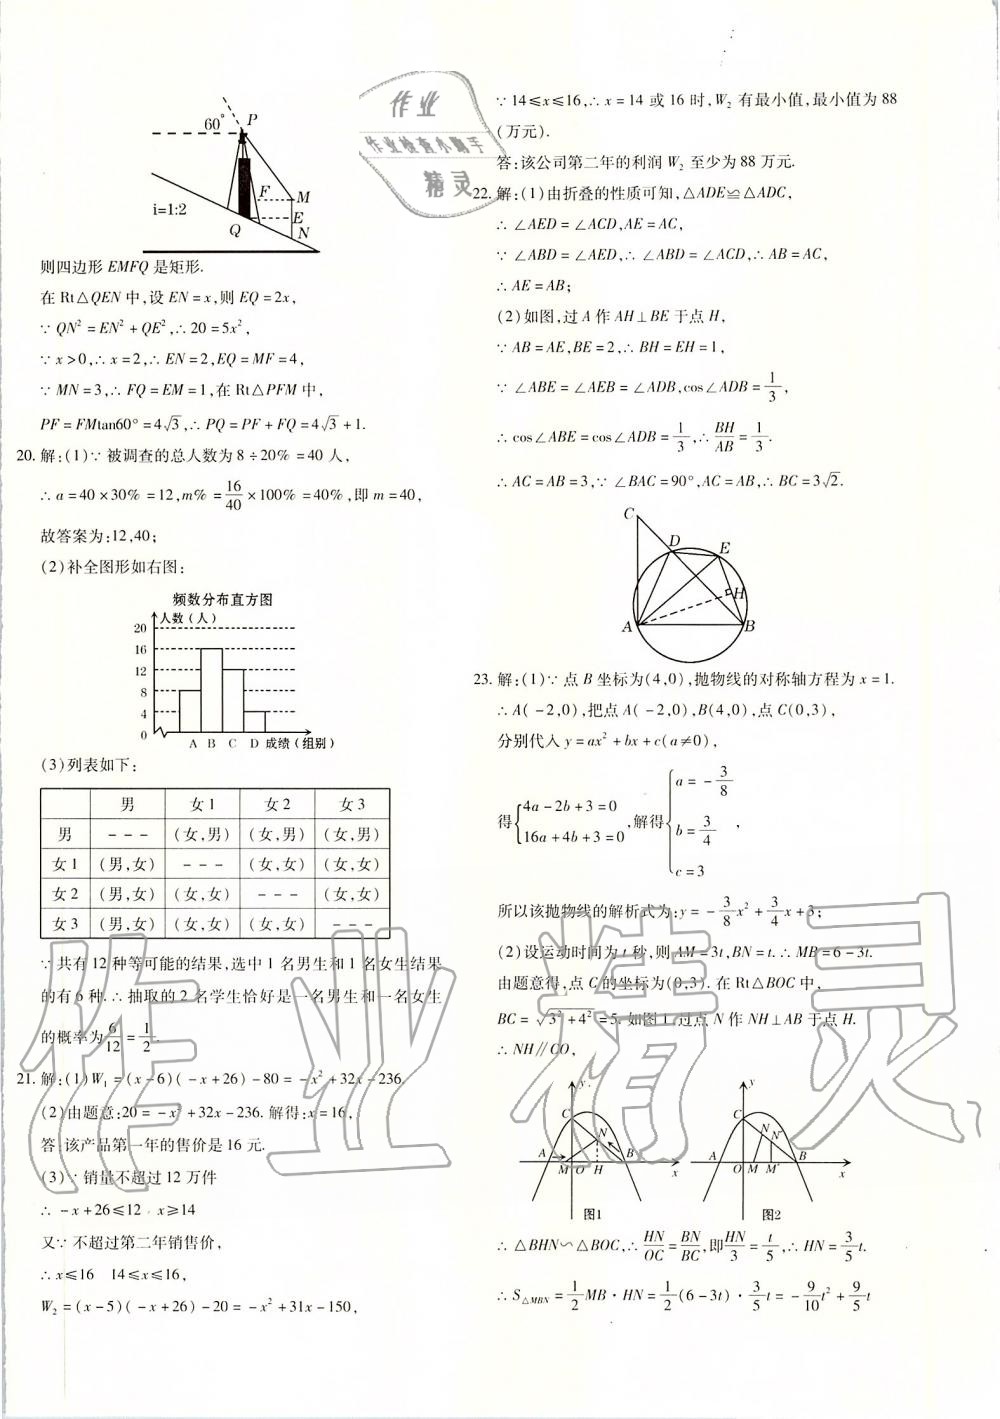 60° P
F M
i=1:2 E
Q N
则四边形 EMFQ 是矩形.
在 Rt△QEN 中,设 EN=x,则 EQ=2x,
∵ QN²=EN²+QE²,∴ 20=5x²,
∵ x>0,∴ x=2,∴ EN=2,EQ=MF=4,
∵ MN=3,∴ FQ=EM=1,在 Rt△PFM 中,
PF=FMtan60°=4√3,∴ PQ=PF+FQ=4√3+1.
20. 解:(1)∵ 被调查的总人数为 8÷20%=40 人,
∴ a=40×30%=12,m%=16/40×100%=40%,即 m=40,
故答案为:12,40;
(2)补全图形如右图:
频数分布直方图
人数(人)
20
16
12
8
4
0
A B C D 成绩(组别)
(3)列表如下:
男 女1 女2 女3
男 --- (女,男) (女,男) (女,男)
女1 (男,女) --- (女,女) (女,女)
女2 (男,女) (女,女) --- (女,女)
女3 (男,女) (女,女) (女,女) ---
∵ 共有 12 种等可能的结果,选中 1 名男生和 1 名女生结果
的有 6 种.∴ 抽取的 2 名学生恰好是一名男生和一名女生
的概率为6/12=1/2.
21. 解:(1)W₁=(x-6)(-x+26)-80=-x²+32x-236.
(2)由题意:20=-x²+32x-236. 解得:x=16,
答:该产品第一年的售价是 16 元.
(3)∵ 销量不超过 12 万件
∴ -x+26≤12 x≥14
又∵ 不超过第二年销售价,
∴ x≤16 14≤x≤16,
W₂=(x-5)(-x+26)-20=-x²+31x-150,
作业
作业检查小助手
精灵
∵ 14≤x≤16,∴ x=14 或 16 时,W₂ 有最小值,最小值为 88
(万元).
答:该公司第二年的利润 W₂ 至少为 88 万元.
22. 解:(1)由折叠的性质可知,△ADE≌△ADC,
∴ ∠AED=∠ACD,AE=AC,
∵ ∠ABD=∠AED,∴ ∠ABD=∠ACD,∴ AB=AC,
∴ AE=AB;
(2)如图,过 A 作 AH⊥BE 于点 H,
∵ AB=AE,BE=2,∴ BH=EH=1,
∵ ∠ABE=∠AEB=∠ADB,cos∠ADB=1/3,
∴ cos∠ABE=cos∠ADB=1/3,∴ BH/AB=1/3.
∴ AC=AB=3,∵ ∠BAC=90°,AC=AB,∴ BC=3√2.
C
D E
H
A B
23. 解:(1)∵ 点 B 坐标为(4,0),抛物线的对称轴方程为 x=1.
∴ A(-2,0),把点 A(-2,0),B(4,0),点 C(0,3),
分别代入 y=ax²+bx+c(a≠0),
得{4a-2b+3=0 16a+4b+3=0,解得{a=-3/8 b=3/4 c=3,
所以该抛物线的解析式为:y=-3/8x²+3/4x+3;
(2)设运动时间为 t 秒,则 AM=3t,BN=t.∴ MB=6-3t.
由题意得,点 C 的坐标为(0,3). 在 Rt△BOC 中,
BC=√3²+4²=5. 如图 1,过点 N 作 NH⊥AB 于点 H.
∴ NH∥CO,
y y
C C
N N N'
A B A B
M O H x O M M' x
图1 图2
∴ △BHN∽△BOC,∴ HN/OC=BN/BC,即HN/3=t/5,∴ HN=3/5t.
∴ S△MBN=1/2MB·HN=1/2(6-3t)·3/5t=-9/10t²+9/5t
作业精灵